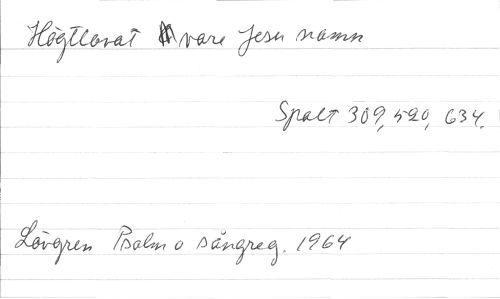 Högtlovat vare Jesu namn
Spalt 309, 520, 634.
Lövgren Psalm o sångreg. 1964